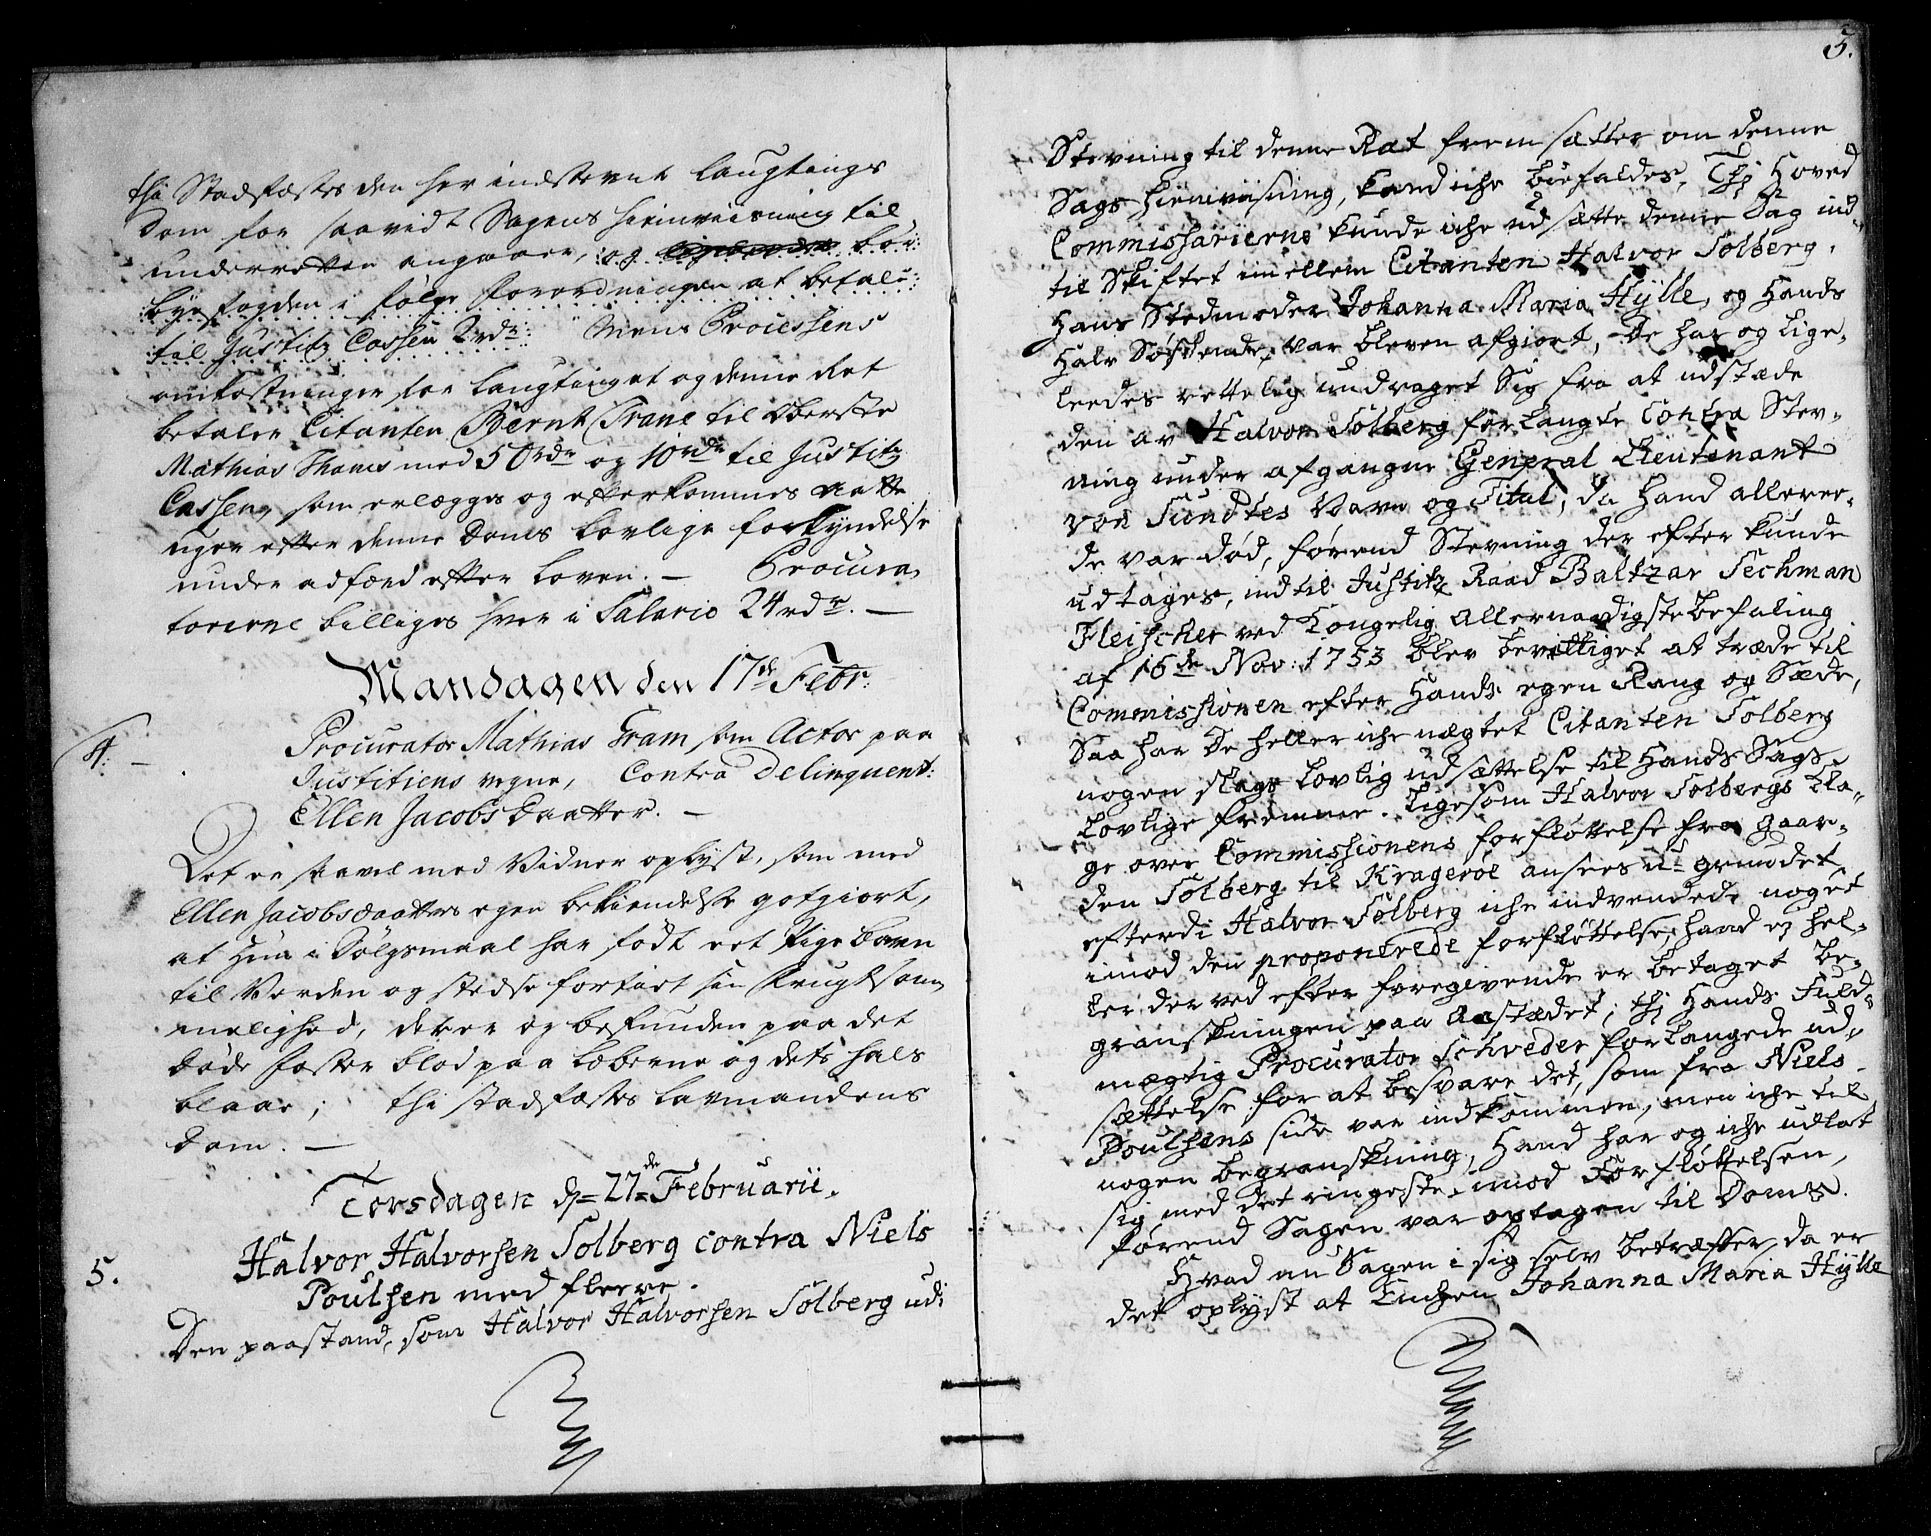 thi Stadfæstes den her indstevnte Laugtings
Dom for saavidt Sagens hienviisning til
underretten angaaer, og bør
byefogden i følge Forordningen at betale
til Justitz Cassen 2 rdr. Mens Processens
omkostninger for Laugtinget og denne Ret
betaler Citanten Bernt Trane til Oberste
Mathias Thams med 50 rdr og 10 rdr til Justitz
Cassen, som erlægges og efterkommes otte
uger efter denne Doms lovlige forkyndelse
under adfærd efter Loven. — Procura-
torerne billiges hver i Salario 24 rdr. —
Mandagen den 17de Febr:
4. —
Procurator Mathias Fram som Actor paa
Justitiens vegne, Contra Delinquent:
Ellen Jacobs Daatter. —
Det er saavel med Vidner oplyst, som med
Ellen Jacobsdaatters egen bekiendelse gotgiort,
at Hun i Dølgsmaal har født et Pige Barn
til Verden og stedse fortiet sin Frugtsom-
melighed, der er og befunden paa det
døde foster blod paa Læberne og dets hals
blaae; thi stadfæstes Lavmandens
Dom. —
Torsdagen d= 27de Februarii.
5.
Halvor Halvorsen Solberg contra Niels
Poulsen med fleere.
Den paastand, som Halvor Halvorsen Solberg udi
5.
Stevning til denne Ræt fremsætter om denne
Sags hienviisning, kand iche biefaldes, Thj Hoved
Commissarierne kunde iche udsætte denne Sag ind-
til Skiftet imellem Citanten Halvor Solberg,
Hans Stedmoder Johanna Maria Hylle, og Hands
Halv Søskende, var bleven afgiort, De har og lige-
leedes rettelig undraget Sig fra at udstæde
den av Halvor Solberg forlangte Contra Stev-
ning under afgangne General Lieutenant
von Sundtes Navn og Titul, da Hand allere-
de var død, førend Stevning der efter kunde
udtages, indtil Justitz Raad Baltzar Sechman
Fleischer ved Kongelig Allernaadigste befaling
af 16de Nov: 1753 blev bevilliget at træde til
Commissionen efter Hands egen Rang og Sæde,
Saa har De heller iche nægtet Citanten Solberg
nogen slags lovlig udsættelse til Hands Sags
Lovlige fremme. Ligesom Halvor Solbergs Kla-
ge over Commissionens forfløttelse fra gaar-
den Solberg til Krageröe ansees u-grundet,
efterdi Halvor Solberg iche indvendede noget
imod den proponerede forfløttelse; hand ej hel-
ler der ved efter foregivende er betaget be-
granskningen paa Aastædet; thj Hands Fuld-
mægtig Procurator Schreder forlangede ud-
sættelse for at besvare det, som fra Niels
Poulsens side var indkommen, men iche til
nogen begranskning, Hand har og iche udlat
sig med det ringeste imod Forfløttelsen,
førend Sagen var optagen til Doms.
Hvad nu Sagen i sig selv betræffer, da er
det oplyst at Enchen Johanna Maria Hylle